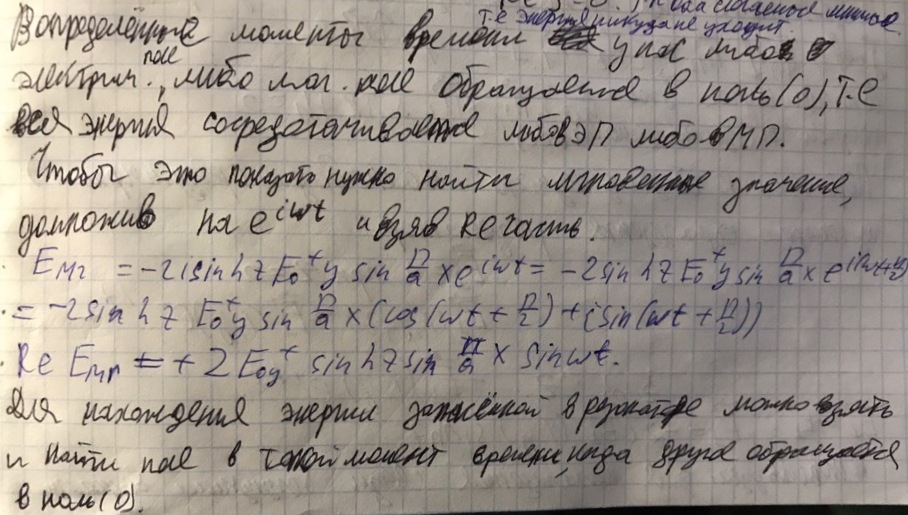 т.е энергия никуда не уходит.
В определённые моменты времени у нас либо
электрич. поле, либо маг. поле обращается в ноль (0), т.е
вся энергия сосредотачивается либо в ЭП либо в МП.
Чтобы это показать нужно найти мгновенные значение,
домножив на e^{iωt} и взяв Re часть.
Eмг = -2i sin hz E₀⁺y sin π/a x e^{iωt} = -2 sin hz E₀⁺y sin π/a x e^{i(ωt+π/2)}
= -2 sin hz E₀⁺y sin π/a x (cos(ωt + π/2) + i sin(ωt + π/2))
Re Eмг = + 2 E₀y⁺ sin hz sin π/a x sin ωt.
Для нахождения энергии запасённой в резонаторе можно взять
и найти поле в такой момент времени, когда другое обращается
в ноль (0).